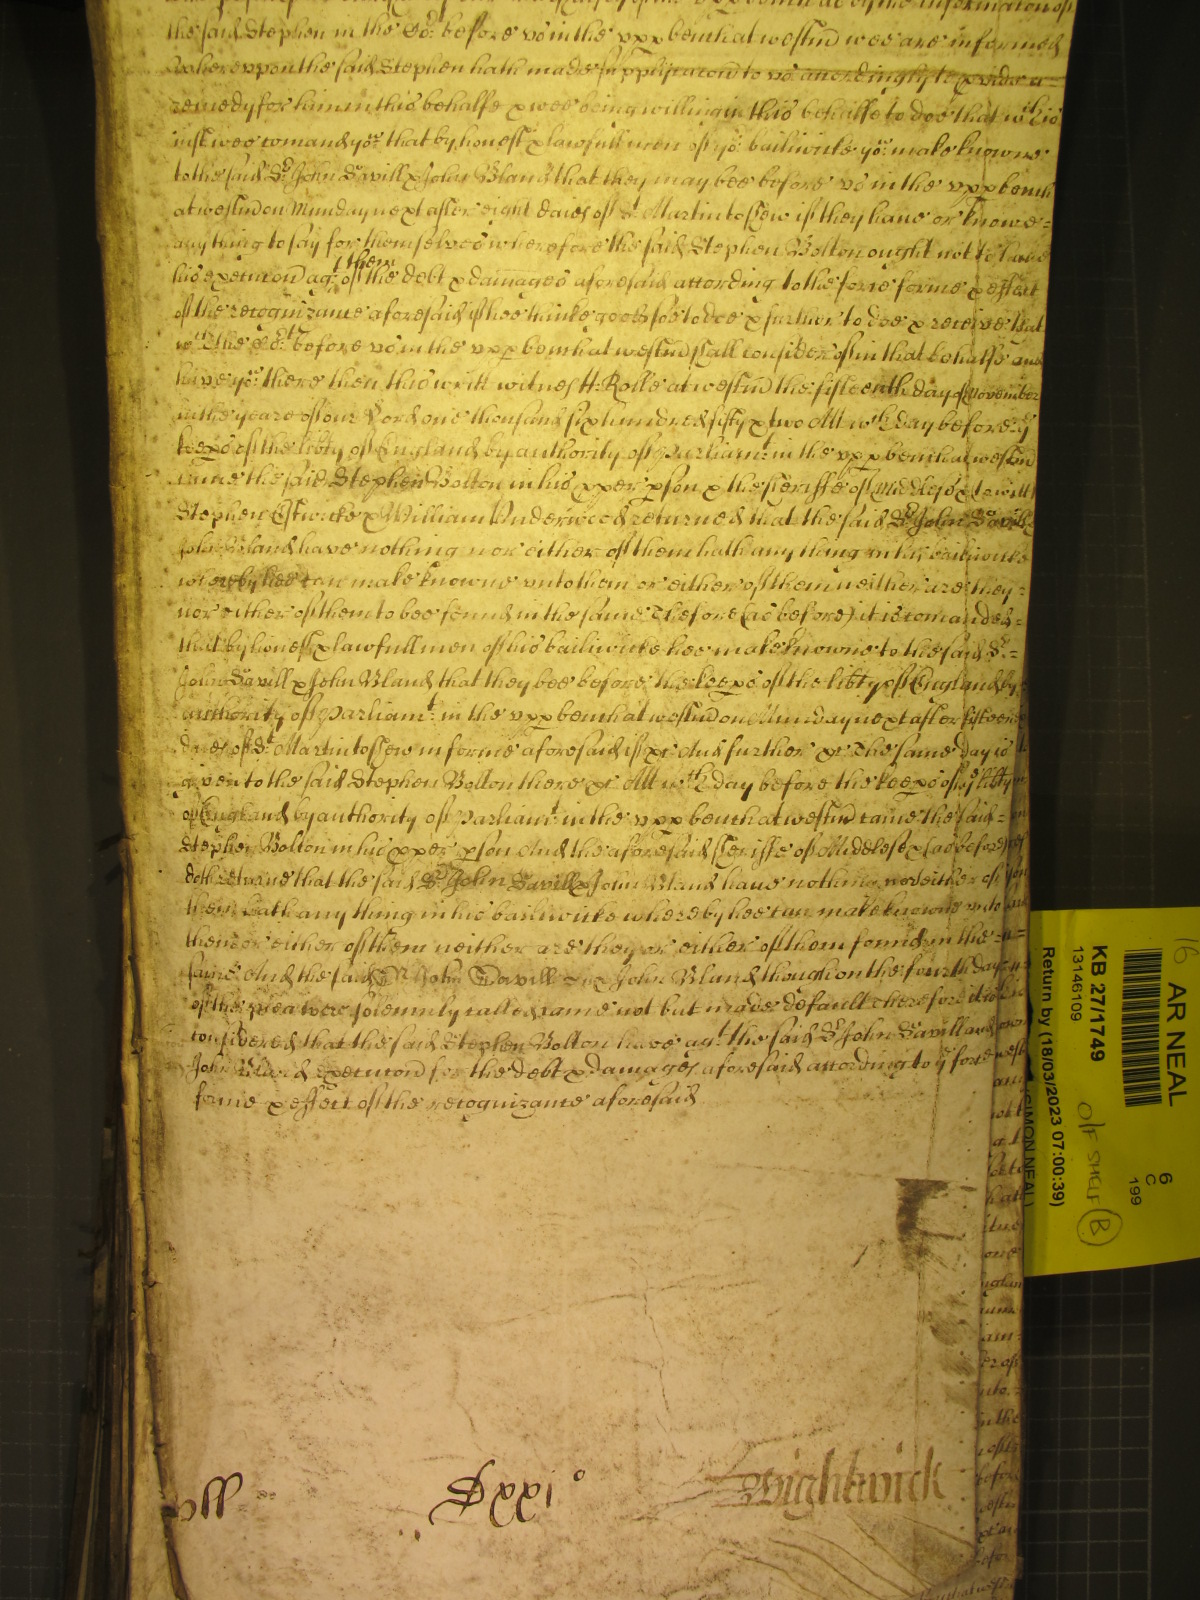 the said Stephen in the Cot before us in the upp bench at westm wee are informed
whereupon the said Stephen hath made supplicacon to us accordingly to p vide a
remedy for him in this behalfe & wee being willing in this behalfe to doe that wch is
iust wee comand yow that by honest & lawfull men of yor bailiwicke yow make knowne
to the said Sr John Savill & John Bland that they may bee before us in the upp bench
at westm on Munday next after eight daies of St Martin to shew if they have or knowe
any thing to say for themselves wherefore the said Stephen Bolton ought not to have
his execucon agt them of the debt & damages aforesaid according to the force forme & effect
of the recognizance aforesaid if hee thinke good soe to doe & further to doe & receive that
wch the Cot before us in the upp bench at westm shall consider of in that behalfe and
have yow there then this writt witnes H: Rolle at westm the fifteenth day of November
in the yeare of our Lord one thousand six hundred fifty & two Att wch day before ye
keeps of the libty of England by authority of Parliamt in the upp bench at westm
came the said Stephen Bolton in his pper pson & the sheriffe of Middlesex to witt
Stephen Estwicke & William Underwood returned that the said Sr John Savill &
John Bland have nothing nor either of them hath any thing in his bailiwicke
whereby hee can make knowne unto them or either of them neither are they
nor either of them to bee found in the same Therefore (as before) it is comanded
that by honest & lawfull men of his bailiwicke hee make knowne to the said Sr
John Savill & John Bland that they bee before the keeps of the libty of England by
authority of Parliamt in the upp bench at westm on Munday next after fifteene
daies of St Martin to shew in forme aforesaid if &c And further &c The same day is
given to the said Stephen Bolton there &c Att wch day before the keeps of ye libty
of England by authority of Parliamt in the upp bench at westm came the said
Stephen Bolton in his pper pson And the aforesaid sheriffe of Middlesex (as before)
doth returne that the said Sr John Savill & John Bland have nothing nor either of
them hath any thing in his bailiwicke whereby hee can make knowne unto
them or either of them neither are they or either of them found in the
same And the said Sr John Savill & John Bland though on the fourth day
of the plea were solemnly called came not but made default Therefore it is
considered that the said Stephen Bolton have agt the said Sr John Savill and
John Bland Execucon for the debt & damages aforesaid according to ye force
forme & effect of the recognizance aforesaid
Dxxio
Wightwick
16
AR NEAL
KB 27/1749
13146109
Return by (18/03/2023 07:00:39)
(SIMON NEAL)
6
C
199
O/F SHELF B